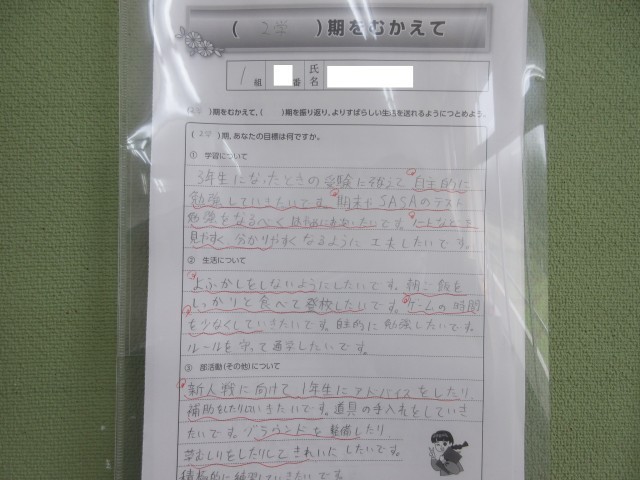 ( 2学 )期をむかえて
1組 番 氏名
(2学 )期をむかえて、( )期を振り返り、よりすばらしい生活を送れるようにつとめよう。
(2学 )期、あなたの目標は何ですか。
① 学習について
3年生になったときの受験に備えて自主的に
勉強していきたいです。期末やSASAのテスト
勉強をなるべく したいです。ノートなどを
見やすく、分かりやすくなるように工夫したいです。
② 生活について
よふかしをしないようにしたいです。朝ご飯を
しっかりと食べて登校したいです。ゲームの時間
を少なくしていきたいです。自主的に勉強したいです。
ルールを守って通学したいです。
③ 部活動(その他)について
新人戦に向けて1年生にアドバイスをしたり、
補助をしたりしていきたいです。道具の手入れをしていき
たいです。グラウンドを整備したり
草むしりをしたりしてきれいにしたいです。
積極的に練習していきたいです